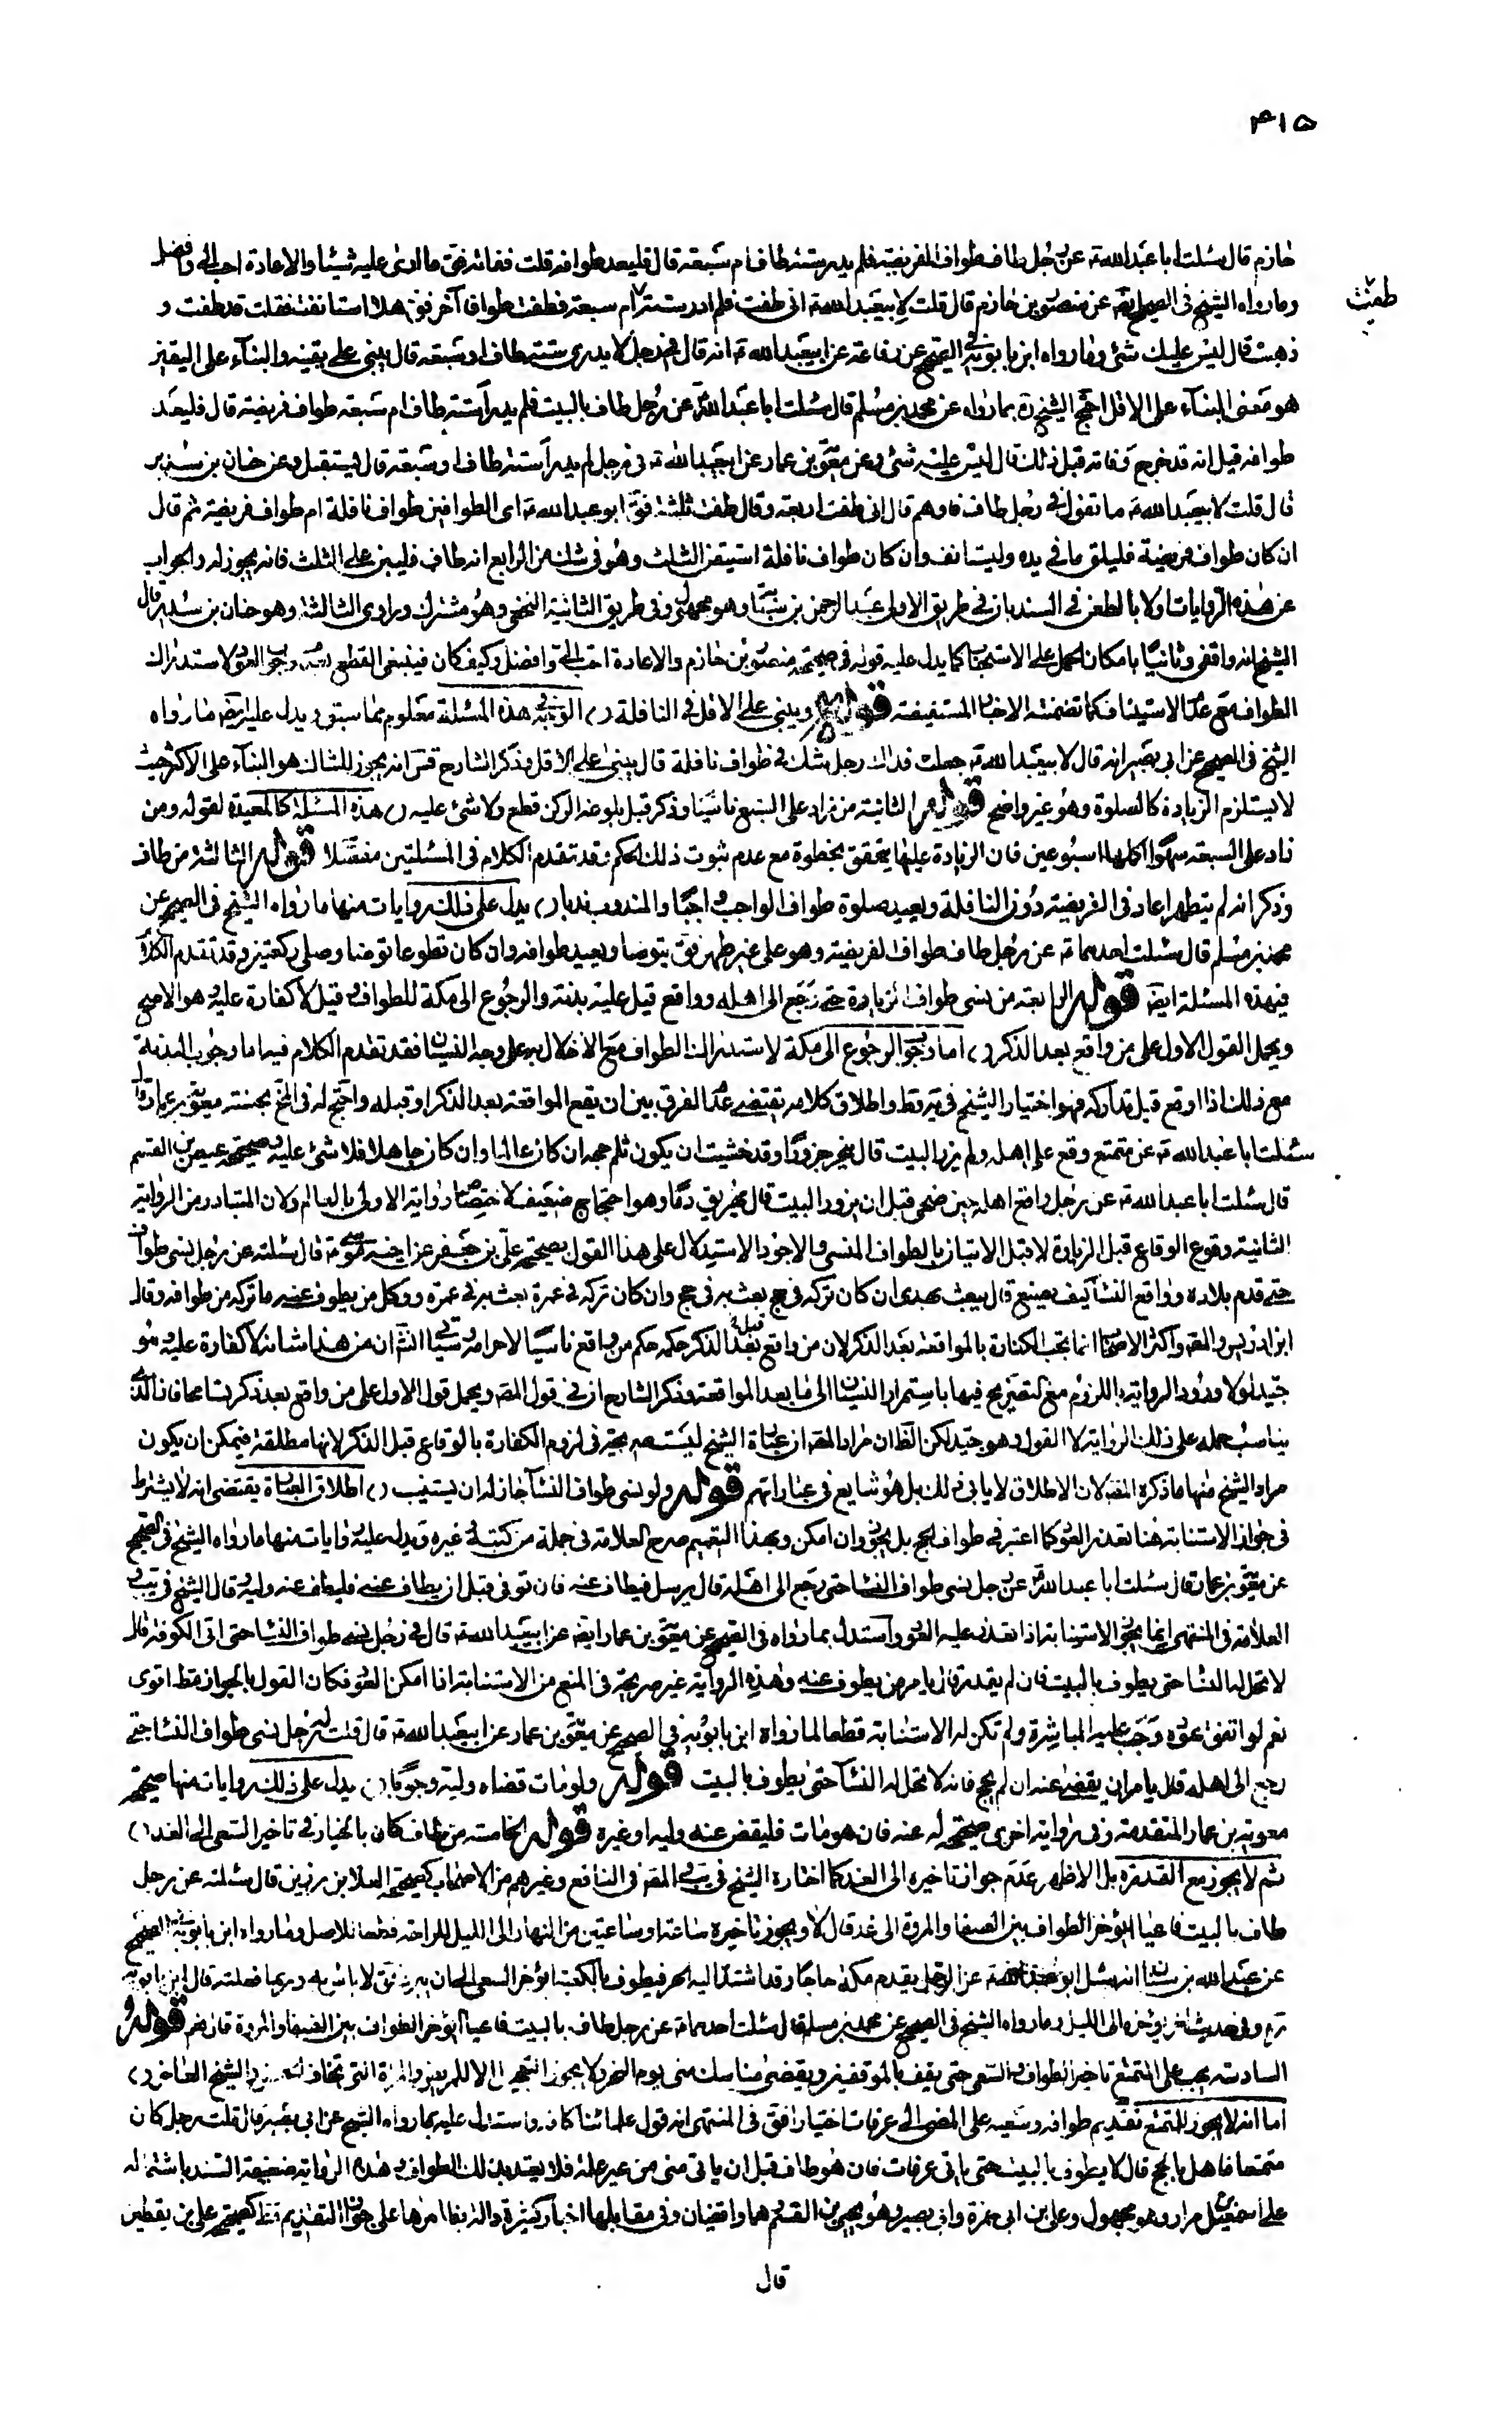 ۴۱۵
خازم قال سئلت ابا عبدالله ع عن رجل طاف طواف الفريضة فلم يدر ستة طاف ام سبعة قال فليعد طوافه قلت ففاته فق ما ارى عليه شيئا والاعادة احب الى وافضل
طفت
وما رواه الشيخ فى الصحيح ايضه عن منصور بن خازم قال قلت لابيعبد الله ع انى طفت فلم ادر ستة ام سبعة فطفت طوافا آخر فق هلا استانفت فقلت قد طفت و
ذهبت قال ليس عليك شئ وما رواه ابن بابويه فى الصحيح عن رفاعة عن ابيعبد الله ع انه قال فى رجل لا يدرى ستة طاف او سبعة قال يبنى على يقينه والبنآء على اليقين
هو معنى البنآء على الاقل احتج الشيخ ره بما رواه عن محمد بن مسلم قال سئلت ابا عبد الله ع عن رجل طاف بالبيت فلم يدر أستة طاف ام سبعة طواف فريضة قال فليعد
طوافه قيل انه قد خرج وفاته قبل ذلك قال ليس عليه شئ وعن معوية بن عمار عن ابيعبد الله ع فى رجل لم يدر أستة طاف او سبعة قال يستقبل وعن حنان بن سدير
قال قلت لابيعبد الله ع ما تقول فى رجل طاف فاوهم قال انى طفت اربعة وقال طفت ثلثة فق ابو عبد الله ع اى الطوافين طواف نافلة ام طواف فريضة ثم قال
ان كان طواف فريضة فليلق ما فى يده وليستانف وان كان طواف نافلة استيقن الثلث وهو فى شك من الرابع انه طاف فليبن على الثلث فانه يجوز له والجواب
عن هذه الروايات اولا بالطعن فى السند بان فى طريق الاولى عبد الرحمن بن سيابة وهو مجهول وفى طريق الثانية النخعى وهو مشترك وراوى الثالثة وهو حنان بن سدير قال
الشيخ انه واقفى وثانيا بامكان الحمل على الاستحباب كما يدل عليه قوله فى صحيحة منصور بن خازم والاعادة احب الى وافضل وكيف كان فينبغى القطع بعدم وجوب العود لاستدراك
الطواف مع عدم الاستيناف كما تضمنته الاخبار المستفيضة قوله ويبنى على الاقل فى النافلة ( ) الوجه فى هذه المسئلة معلوم مما سبق ويدل عليه ايضه ما رواه
الشيخ فى الصحيح عن ابى بصير انه قال لابيعبد الله ع جعلت فداك رجل شك فى طواف نافلة قال يبنى على الاقل وذكر الشارح قس انه يجوز للشاك هو البناء على الاكثر حيث
لا يستلزم الزيادة كالصلوة وهو غير واضح قوله الثانية من زاد على السبع ناسيا وذكر قبل بلوغه الركن قطع ولا شئ عليه ( ) هذه المسئلة كالمعيدة لقوله ومن
زاد على السبعة سهوا اكملها اسبوعين فان الزيادة عليها يتحقق بخطوة مع عدم ثبوت ذلك الحكم وقد تقدم الكلام فى المسئلتين مفصلا قوله الثالثة من طاف
وذكر انه لم يتطهر اعاد فى الفريضة دون النافلة ويعيد صلوة طواف الواجب واجبا والمندوب ندبا ( ) يدل على ذلك روايات منها ما رواه الشيخ فى الصحيح عن
محمد بن مسلم قال سئلت احدهما ع عن رجل طاف طواف الفريضة وهو على غير طهر فق يتوضا ويعيد طوافه وان كان تطوعا توضا وصلى ركعتين وقد تقدم الكلام
فى هذه المسئلة ايضه قوله الرابعة من نسى طواف الزيارة حتى رجع الى اهله وواقع قيل عليه بدنة والرجوع الى مكة للطواف وقيل لا كفارة عليه وهو الاصح
ويحمل القول الاول على من واقع بعد الذكر ( ) اما وجوب الرجوع الى مكة لاستدراك الطواف مع الاخلال به على وجه النسيان فقد تقدم الكلام فيه اما وجوب البدنة
مع ذلك اذا وقع قبل تداركه فهو اختيار الشيخ فى يه وط واطلاق كلامه يقتضى عدم الفرق بين ان يقع المواقعة بعد الذكر او قبله واحتج له فى المخ بحسنة معوية بن عمار قال
سئلت ابا عبد الله ع عن متمتع وقع على اهله ولم يزر البيت قال ينحر جزورا وقد خشيت ان يكون ثلم حجه ان كان عالما وان كان جاهلا فلا شئ عليه وصحيحة عيص بن القسم
قال سئلت ابا عبد الله ع عن رجل واقع اهله حين ضحى قبل ان يزور البيت قال يهريق دما وهو احتجاج ضعيف لاختصاص الرواية الاولى بالعالم ولان المتبادر من الرواية
الثانية وقوع الوقاع قبل الزيارة لا قبل الاتيان بالطواف المنسى والاجود الاستدلال على هذا القول بصحيحة على بن جعفر عن اخيه موسى ع قال سئلته عن رجل نسى طواف
حتى قدم بلاده وواقع النسآ كيف يصنع قال يبعث بهدى ان كان تركه فى حج بعث به فى حج وان كان تركه فى عمرة بعث به فى عمرة ووكل من يطوف عنه ما تركه من طوافه وقال
ابن ادريس والمصه واكثر الاصحاب انما تجب الكفارة بالمواقعة بعد الذكر لان من واقع قبل الذكر حكمه حكم من واقع ناسيا لاحرامه وسياتى انش ان من هذا شانه لا كفارة عليه وهو
جيد لولا ورود الرواية باللزوم مع التصريح فيها باستمرار النسيان الى ما بعد المواقعة وذكر الشارح ان فى قول المصه ويحمل قول الاول على من واقع بعد ذكر تسامحا فان الذى
يناسب حمله على ذلك الرواية لا القول وهو جيد لكن الظ ان مراد المصه ان عبارة الشيخ ليست صريحة فى لزوم الكفارة بالوقاع قبل الذكر لانها مطلقة فيمكن ان يكون
مراد الشيخ منها ما ذكره المصه لان الاطلاق لا يابى ذلك بل هو شايع فى عباراتهم قوله ولو نسى طواف النسآ جاز له ان يستنيب ( ) اطلاق العبارة يقتضى انه لا يشترط
فى جواز الاستنابة هنا تعذر العود كما اعتبر فى طواف الحج بل يجوز وان امكن وبهذا التعميم صرح العلامة فى جملة من كتبه وغيره ويدل عليه روايات منها ما رواه الشيخ فى الصحيح
عن معوية بن عمار قال سئلت ابا عبد الله ع عن رجل نسى طواف النسا حتى رجع الى اهله قال يرسل فيطاف عنه فان توفى قبل ان يطاف عنه فليطف عنه وليه وقال الشيخ فى يب و
العلامة فى المنتهى انما يجوز الاستنابة اذا تعذر عليه العود واستدل بما رواه فى الصحيح عن معوية بن عمار ايضه عن ابيعبد الله ع قال فى رجل نسى طواف النسا حتى اتى الكوفة قال
لا تحل له النسا حتى يطوف بالبيت قلت فان لم يقدر قال يامر من يطوف عنه وهذه الرواية غير صريحة فى المنع من الاستنابة اذا امكن العود فكان القول بالجواز مط اقوى
نعم لو اتفق عوده وجب عليه المباشرة ولم تكن له الاستنابة قطعا لما رواه ابن بابويه فى الصحيح عن معوية بن عمار عن ابيعبد الله ع قال قلت له رجل نسى طواف النسا حتى
رجع الى اهله قال يامر ان يقضى عنه ان لم يحج فانه لا تحل له النسآ حتى يطوف بالبيت قوله ولو مات قضاه وليه وجوبا ( ) يدل على ذلك روايات منها صحيحة
معوية بن عمار المتقدمة وفى رواية اخرى صحيحة له عنه فان هو مات فليقض عنه وليه او غيره قوله الخامسة من طاف كان بالخيار فى تاخير السعى الى الغد ( )
ثم لا يجوز مع القدرة بل الاظهر عدم جواز تاخيره الى الغد كما اختاره الشيخ فى يب والمصه فى النافع وغيرهم من الاصحاب كصحيحة العلا بن رزين قال سئلته عن رجل
طاف بالبيت فاعيا ايؤخر الطواف بين الصفا والمروة الى غد قال لا ويجوز تاخيره ساعة وساعتين من النهار الى الليل للراحة قطعا للاصل وما رواه ابن بابويه فى الصحيح
عن عبد الله بن سنان انه سئل ابو عبد الله ع عن الرجل يقدم مكة حاجا وقد اشتد عليه الحر فيطوف بالكعبة ايؤخر السعى الى ان يبرد فق لا باس به وربما فعلته قال ابن بابويه
ره وفى حديث اخر يؤخره الى الليل وما رواه الشيخ فى الصحيح عن محمد بن مسلم قال سئلت احدهما ع عن رجل طاف بالبيت فاعيا ايؤخر الطواف بين الصفا والمروة قال نعم قوله
السادسة يجب على المتمتع تاخير الطواف والسعى حتى يقف بالموقفين ويقضى مناسك منى يوم النحر ولا يجوز التعجيل الا للمريض والمراة التى تخاف الحيض والشيخ العاجز ( )
اما انه لا يجوز للمتمتع تقديم طوافه وسعيه على المضى الى عرفات اختيارا فق فى المنتهى انه قول علمائنا كافة واستدل عليه بما رواه الشيخ عن ابى بصير قال قلت رجل كان
متمتعا فاهل بالحج قال لا يطوف بالبيت حتى ياتى عرفات فان هو طاف قبل ان ياتى منى من غير علة فلا يعتد بذلك الطواف وهذه الرواية ضعيفة السند باشتماله
على اسمعيل بن مرار وهو مجهول وعلى بن ابى حمزة وابى بصير وهو يحيى بن القسم وهما واقفيان وفى مقابلها اخبار كثيرة دالة بظاهرها على جواز التقديم مط كصحيحة على بن يقطين
قال